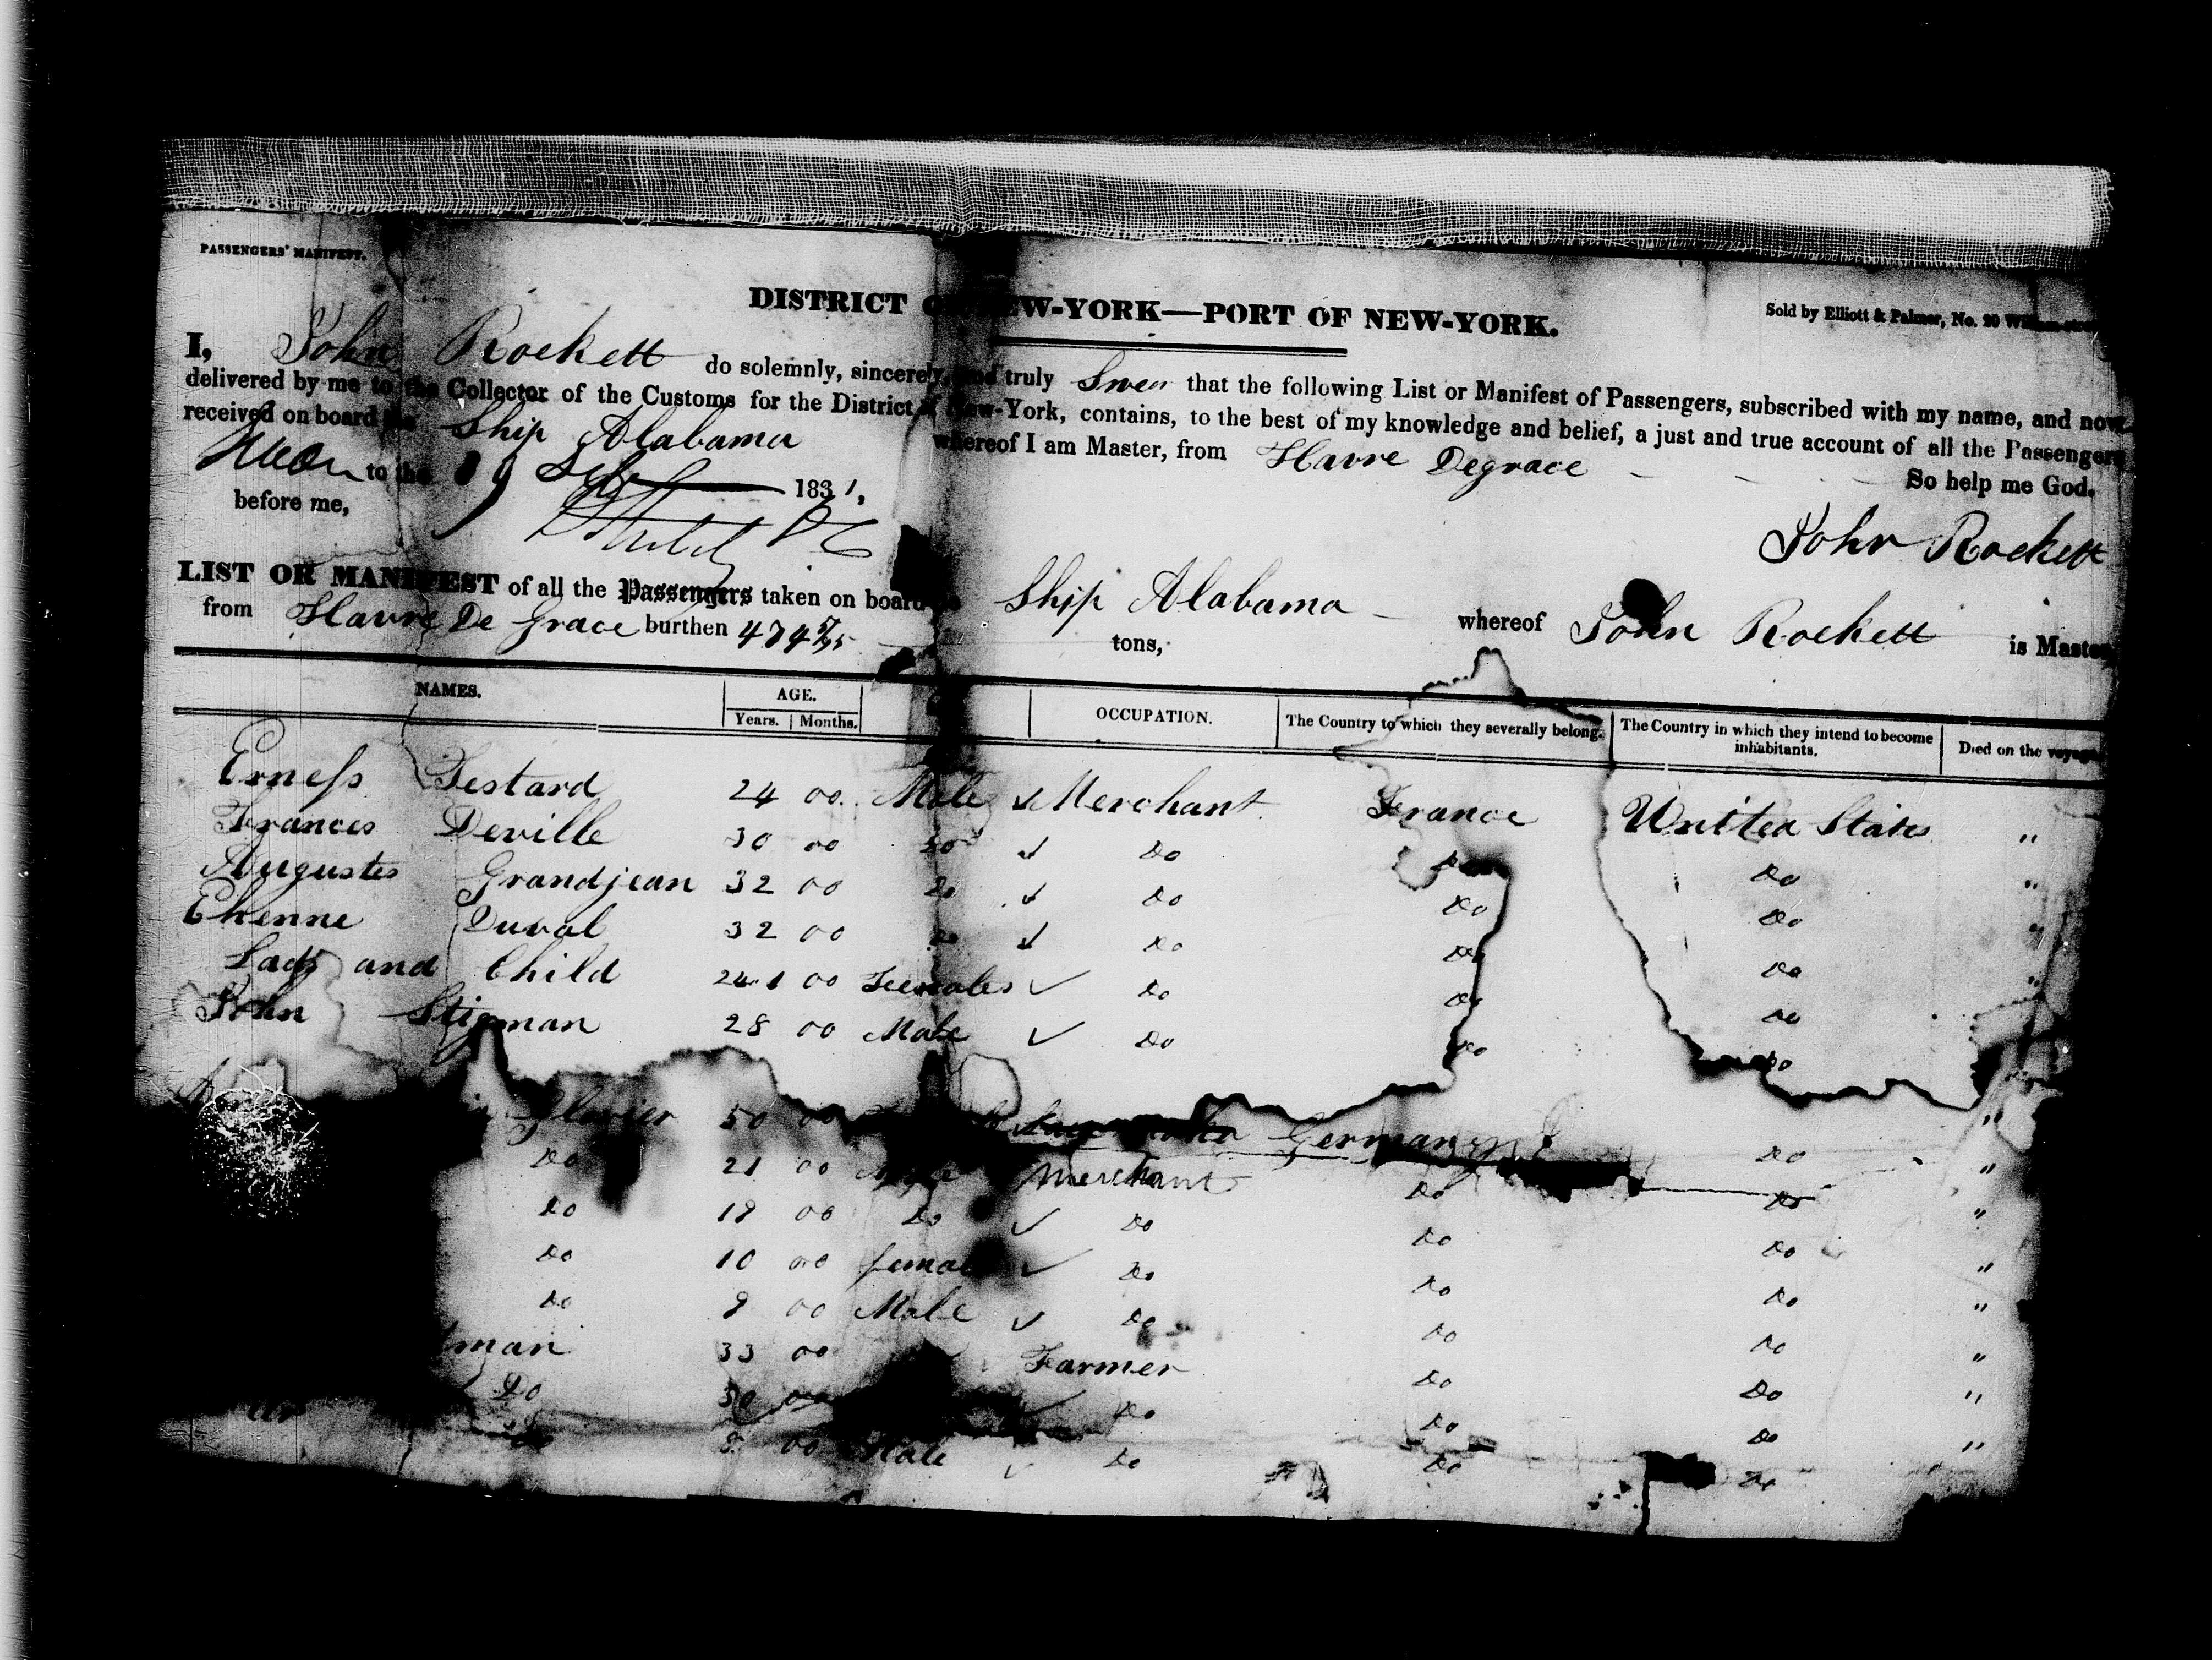 PASSENGERS' MANIFEST.
DISTRICT OF NEW-YORK—PORT OF NEW-YORK.
Sold by Elliott & Palmer, No. 20 William-street
I, John Rockett do solemnly, sincerely, and truly Swear that the following List or Manifest of Passengers, subscribed with my name, and now
delivered by me to the Collector of the Customs for the District of New-York, contains, to the best of my knowledge and belief, a just and true account of all the Passengers
received on board the Ship Alabama whereof I am Master, from Havre Degrace
to the 19 1831, So help me God.
before me, John Rockett
LIST OR MANIFEST of all the Passengers taken on board the Ship Alabama whereof John Rockett is Master
from Havre De Grace burthen 474 tons,
NAMES. AGE. OCCUPATION. The Country to which they severally belong. The Country in which they intend to become inhabitants. Died on the voyage
Years. Months.
Erness Testard 24 00 Male Merchant France United States "
Frances Deville 30 00 Do Do Do Do "
Augustes Grandjean 32 00 Do Do Do Do "
Ehenne Duval 32 00 Do Do Do Do "
Lady and Child 24 1 00 Females Do Do Do
John Stigman 28 00 Male Do Do Do "
50 00 Germany Do "
Do 21 00 Male Merchant Do Do "
Do 19 00 Do Do Do Do "
Do 10 00 female Do Do Do "
Do 9 00 Male Do Do Do "
man 33 00 Farmer Do Do "
Do 30 00 Do Do Do "
Do 8 00 Male Do Do Do